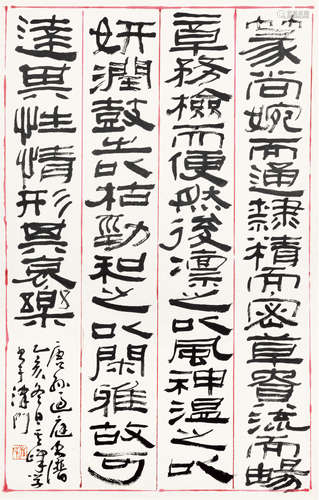 篆尚婉而通隸精而密草貴流而暢
章務檢而便然後凛之以風神温之以
妍潤鼓之以枯勁和之以閑雅故可
達其性情形其哀樂
唐孙过庭书谱
乙亥冬日
书于津门